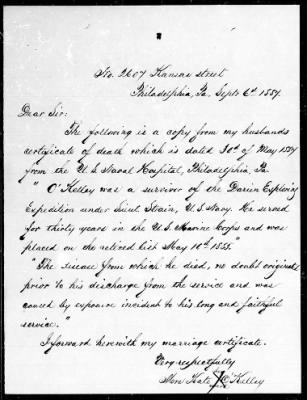 No. 2607 Kansas street
Philadelphia, Pa. Sept. 6th 1887.
Dear Sir:
The following is a copy from my husbands
certificate of death which is dated 30th of May 1887
from the U. S. Naval Hospital, Philadelphia, Pa.
" O'Kelley was a survivor of the Darien Exploring
Expedition under Lieut. Strain, U. S. Navy. He served
for thirty years in the U. S. Marine Corps and was
placed on the retired list May 10th 1885."
"The disease from which he died, no doubt originated
prior to his discharge from the service and was
caused by exposure incident to his long and faithful
service."
I forward herewith my marriage certificate.
Very respectfully
Mrs. Kate O'Kelley